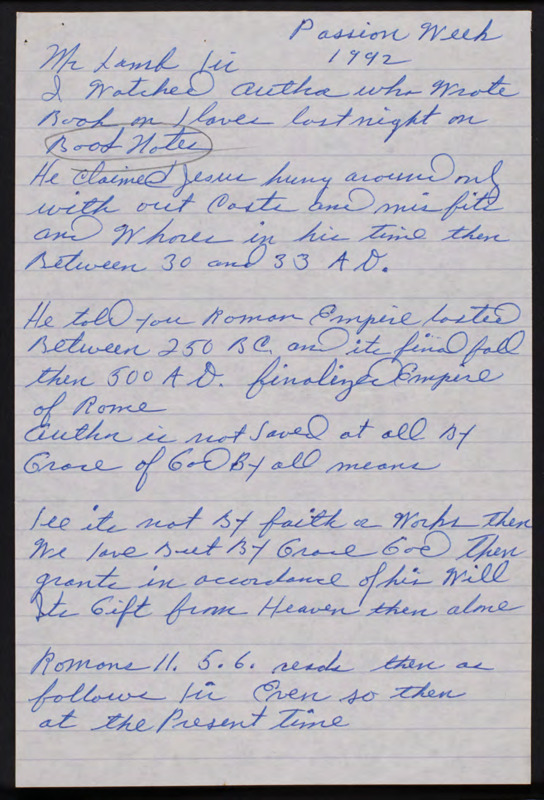 Passion Week
1992
Mr Lamb Sir
I Watched Author who Wrote
Book on Slaves last night on
Book Notes
He claimed Jesus hung around only
with out Casts and mis fits
and Whores in his time then
Between 30 and 33 A.D.
He told you Roman Empire lasted
Between 250 BC and its final fall
then 500 A.D. finalized Empire
of Rome
Author is not Saved at all By
Grace of God By all means
See its not By faith or Works then
We are But By Grace God then
grants in accordance of his Will
Its Gift from Heaven then alone
Romans 11. 5.6. reads then as
follows Sir Even so then
at the Present Time